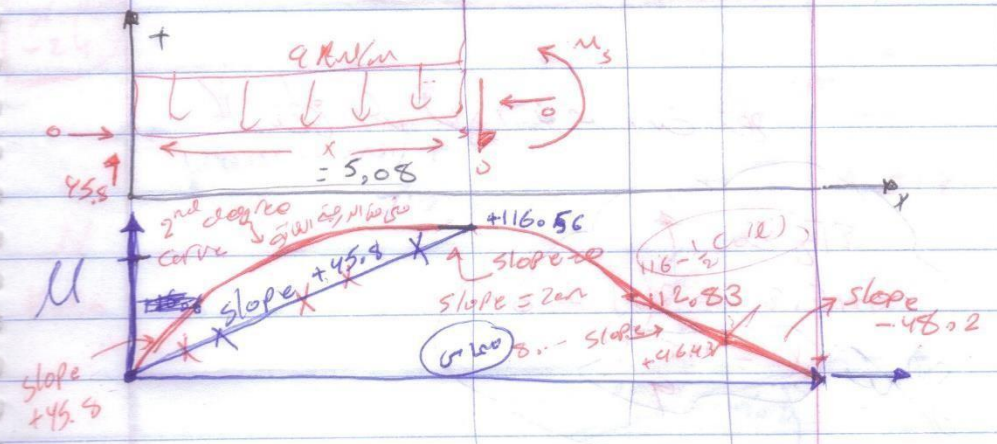 +
9 kN/m
Ms
0
0
x
= 5,08
45.8
0
x
2nd degree
curve
منحنى من الدرجة الثانية
+116.56
M
slope +45.8
slope = zero
slope = zero
112.83
slope
-48.2
slope
+46.43
slope
+45.8